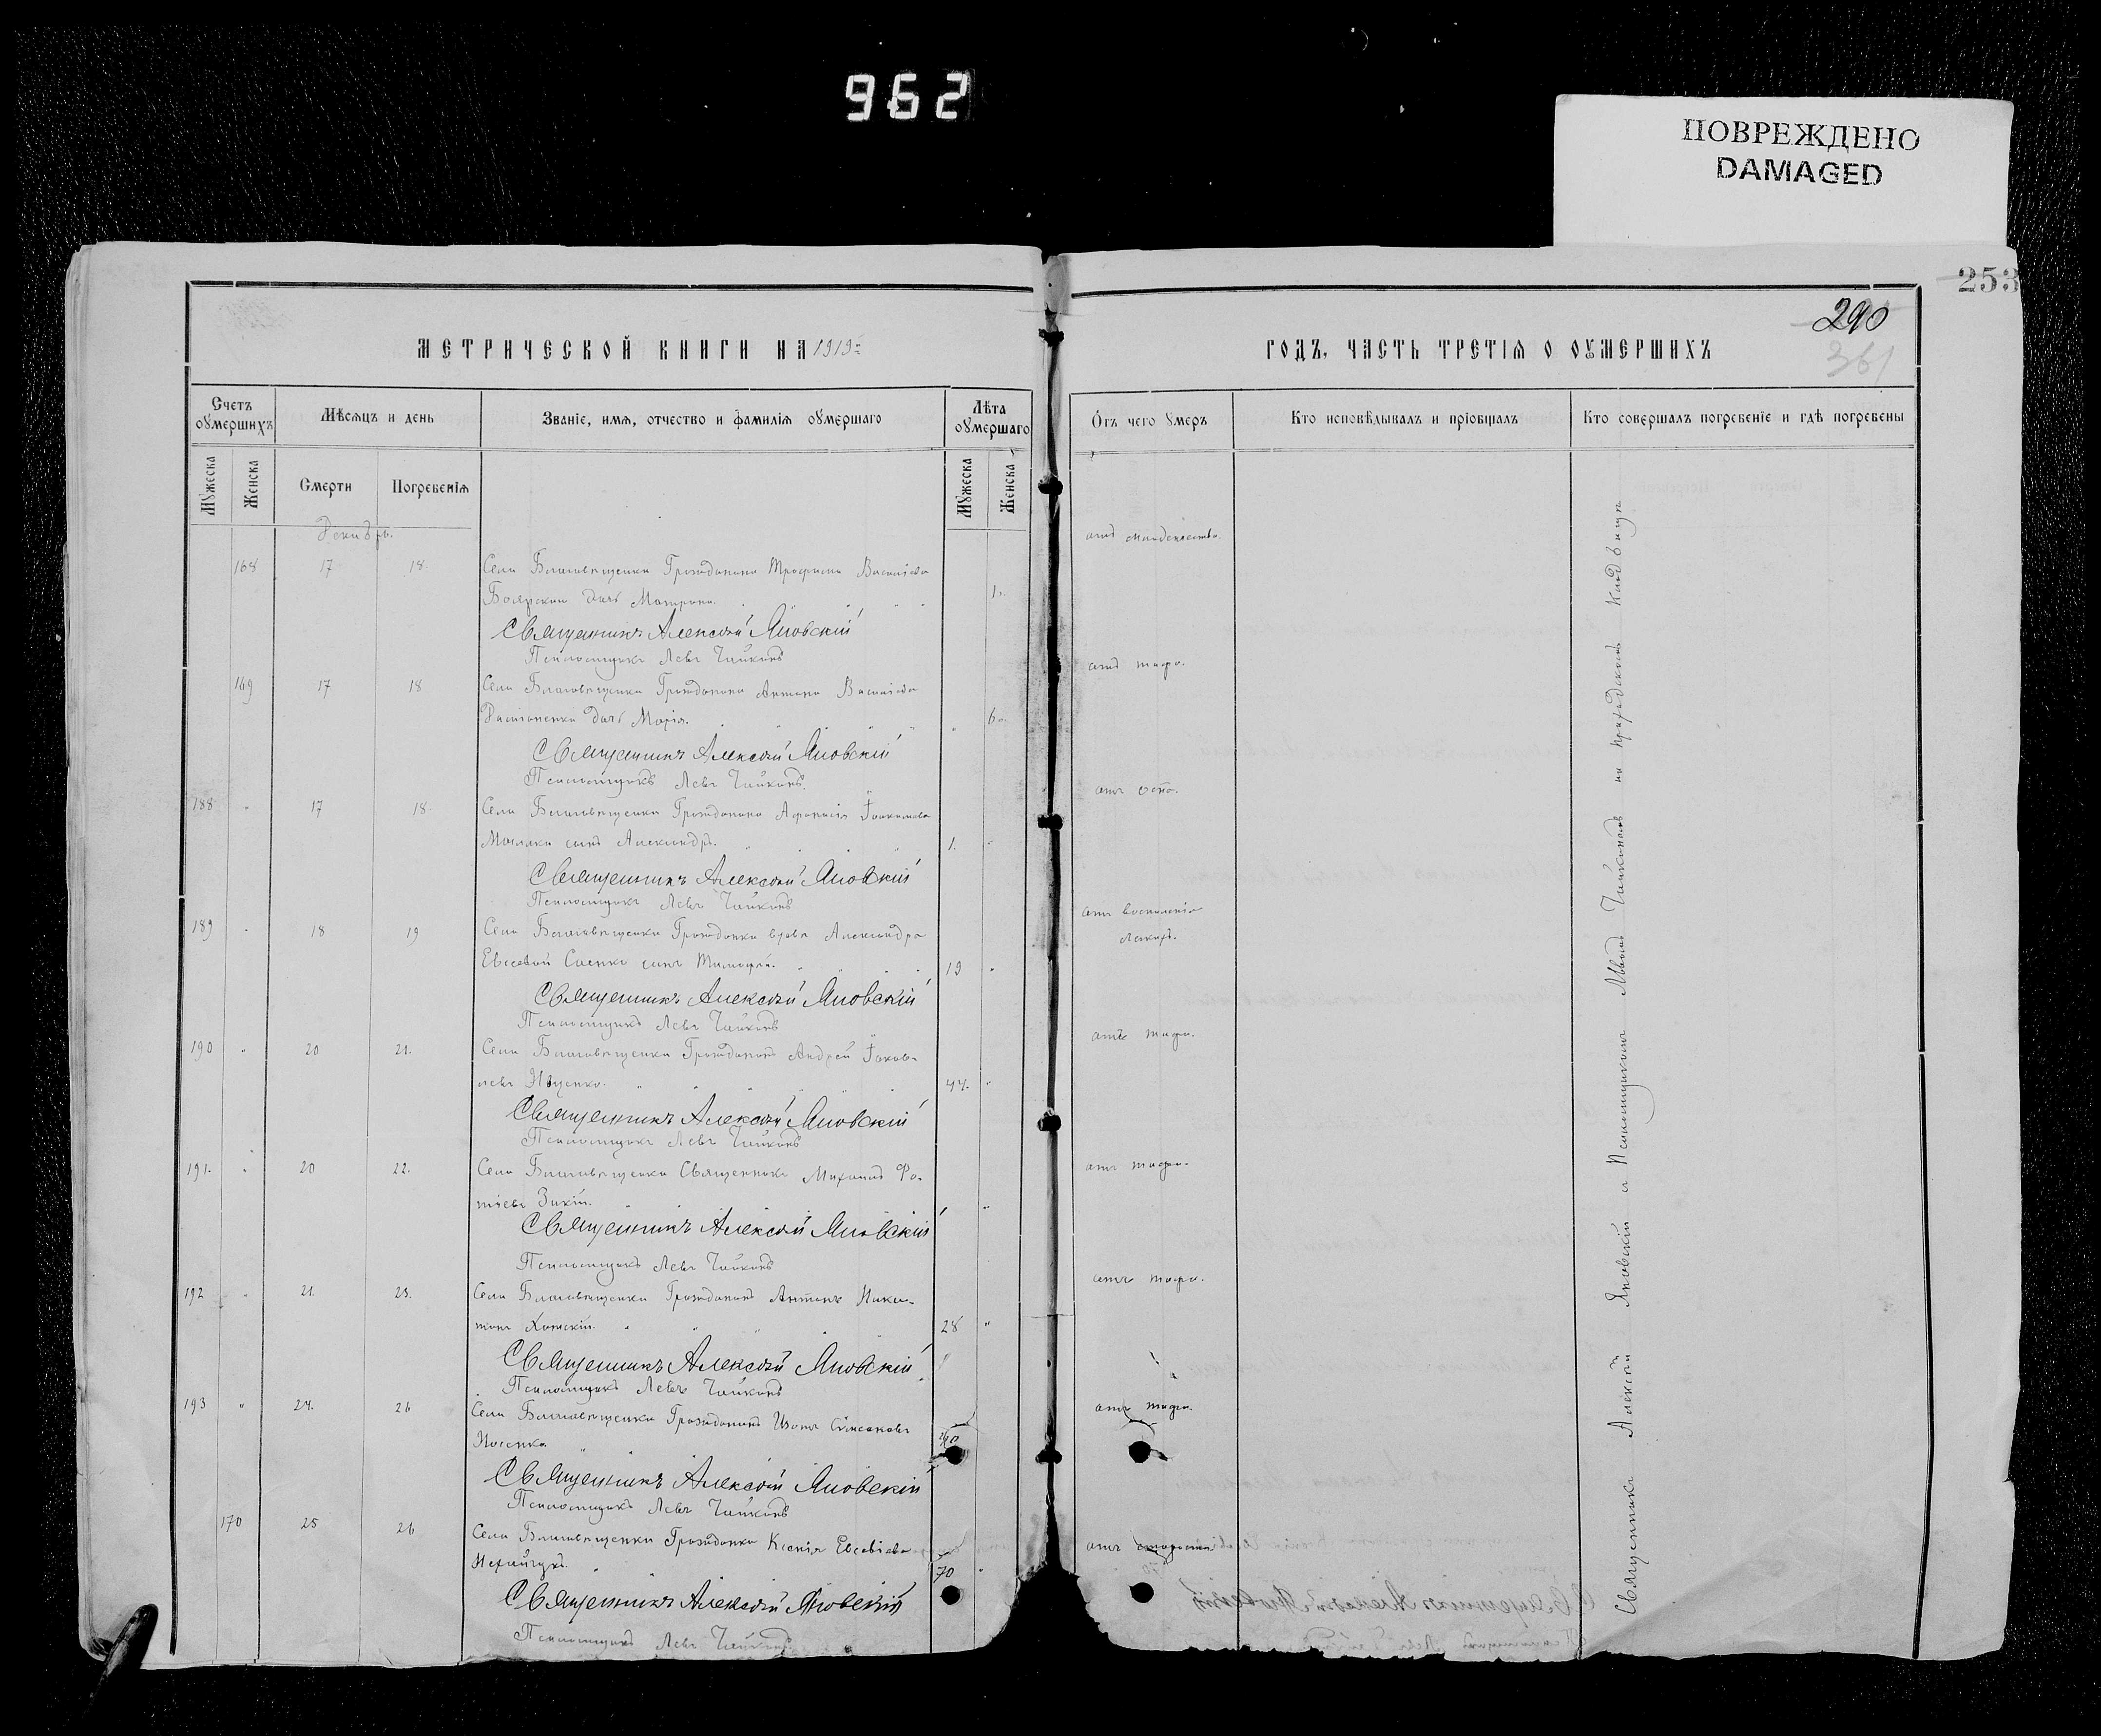 962
ПОВРЕЖДЕНО
DAMAGED
253
290
361
МЕТРИЧЕСКОЙ КНИГИ НА 1919
ГОДЪ, ЧАСТЬ ТРЕТІЯ О ОУМЕРШИХЪ
Счетъ оумершихъ
Мѣсяцъ и день
Званіе, имя, отчество и фамилія оумершаго
Лѣта оумершаго
Отъ чего умеръ
Кто исповѣдывалъ и пріобщалъ
Кто совершалъ погребеніе и гдѣ погребены
Мужеска
Женска
Смерти
Погребенія
Мужеска
Женска
Декабрь.
168 17 18. Села Благовѣщенки Гражданина Трофима Васильева
Боярскаго дочь Матрона. 1.
отъ младенчества.
Священникъ Алексѣй Яновскій
Псаломщикъ Левъ Чайковъ
169 17 18 Села Благовѣщенки Гражданина Антона Васильева
дочь Марія. 6
отъ тифа.
Священникъ Алексѣй Яновскій
Псаломщикъ Левъ Чайковъ
188 17 18. Села Благовѣщенки Гражданина Афанасія Іоакимова
сынъ Александръ. 1.
отъ оспы.
Священникъ Алексѣй Яновскій
Псаломщикъ Левъ Чайковъ
189 18 19 Села Благовѣщенки Гражданки вдовы Александры
Евсеевой сынъ Тимофей. 19
отъ воспаленія
легкихъ.
Священникъ Алексѣй Яновскій
Псаломщикъ Левъ Чайковъ
190 20 21. Села Благовѣщенки Гражданинъ Андрей Іаков-
левъ Ищенко. 44.
отъ тифа.
Священникъ Алексѣй Яновскій
Псаломщикъ Левъ Чайковъ
191. 20 22. Села Благовѣщенки Священникъ Михаилъ Фо-
тіевъ
отъ тифа.
Священникъ Алексѣй Яновскій
Псаломщикъ Левъ Чайковъ
192 21. 23. Села Благовѣщенки Гражданинъ Антонъ
28
отъ тифа.
Священникъ Алексѣй Яновскій
Псаломщикъ Левъ Чайковъ
193 24. 26 Села Благовѣщенки Гражданинъ
Носенко
отъ тифа.
Священникъ Алексѣй Яновскій
Псаломщикъ Левъ Чайковъ
170 25 26 Села Благовѣщенки Гражданка Ксенія Евсевіева
70
отъ старости
Священникъ Алексѣй Яновскій
Псаломщикъ Левъ Чайковъ
Священникъ Алексѣй Яновскій и Псаломщикомъ Львомъ Чайковомъ на приходскомъ кладбищѣ